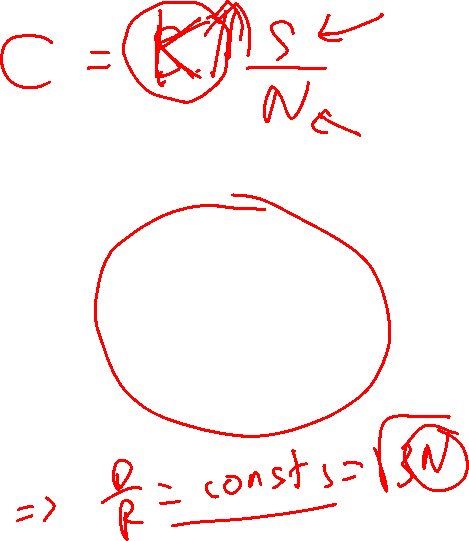 C = K ↑ S / N
=> D/R = const s = √3N